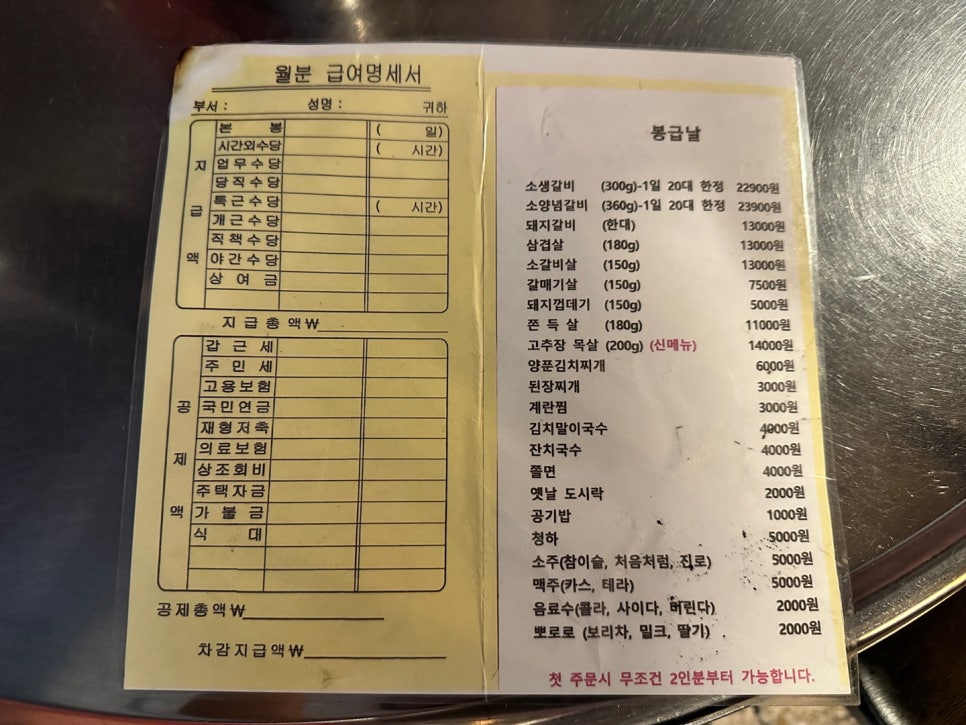 월분 급여명세서
부서 : 성명 : 귀하
지급액
본 봉 ( 일)
시간외수당 ( 시간)
업무수당
당직수당
특근수당 ( 시간)
개근수당
직책수당
야간수당
상여금
지급총액₩
공제액
갑근세
주민세
고용보험
국민연금
재형저축
의료보험
상조회비
주택자금
가불금
식 대
공제총액₩
차감지급액₩
봉급날
소생갈비 (300g)-1일 20대 한정 22900원
소양념갈비 (360g)-1일 20대 한정 23900원
돼지갈비 (한대) 13000원
삼겹살 (180g) 13000원
소갈비살 (150g) 13000원
갈매기살 (150g) 7500원
돼지껍데기 (150g) 5000원
쫀 득 살 (180g) 11000원
고추장 목살 (200g) (신메뉴) 14000원
양푼김치찌개 6000원
된장찌개 3000원
계란찜 3000원
김치말이국수 4000원
잔치국수 4000원
쫄면 4000원
옛날 도시락 2000원
공기밥 1000원
청하 5000원
소주(참이슬, 처음처럼, 진로) 5000원
맥주(카스, 테라) 5000원
음료수(콜라, 사이다, 버린다) 2000원
뽀로로 (보리차, 밀크, 딸기) 2000원
첫 주문시 무조건 2인분부터 가능합니다.